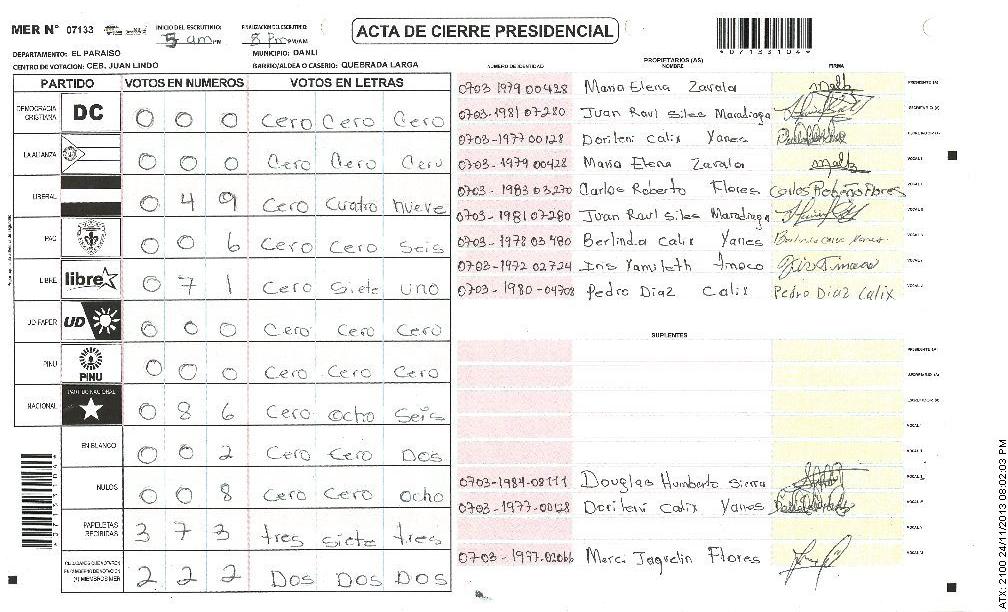 MER N° 07133
INICIO DEL ESCRUTINIO: 5 am PM
FINALIZACION DEL ESCRUTINIO: 8 Pm PM/AM
ACTA DE CIERRE PRESIDENCIAL
*07133104*
DEPARTAMENTO: EL PARAISO
MUNICIPIO: DANLI
CENTRO DE VOTACION: CEB. JUAN LINDO
BARRIO/ALDEA O CASERIO: QUEBRADA LARGA
PARTIDO VOTOS EN NUMEROS VOTOS EN LETRAS
DEMOCRACIA CRISTIANA DC 0 0 0 Cero Cero Cero
LA ALIANZA 0 0 0 Cero Cero Cero
LIBERAL 0 4 9 Cero Cuatro nueve
PAC 0 0 6 Cero Cero Seis
LIBRE libre 0 7 1 Cero Siete uno
UD FAPER UD 0 0 0 Cero Cero Cero
PINU PINU 0 0 0 Cero Cero Cero
NACIONAL PARTIDO NACIONAL 0 8 6 Cero ocho Seis
EN BLANCO 0 0 2 Cero Cero DOS
NULOS 0 0 8 Cero Cero ocho
PAPELETAS RECIBIDAS 3 7 3 tres siete tres
2 2 2 DOS DOS DOS
NUMERO DE IDENTIDAD PROPIETARIOS (AS) NOMBRE FIRMA
0703 1979 00428 Maria Elena Zavala PRESIDENTE (A)
0703-1981 07280 Juan Raul Siles Maradiaga SECRETARIO (A)
0703-1977 00128 Dorileni Calix Yanes ESCRUTADOR (A)
0703-1979 00428 Maria Elena Zavala VOCAL I
0703-1983 03270 Carlos Roberto Flores Carlos Roberto Flores
0703-1981 07280 Juan Raul Siles Maradiaga
0703-1978 03480 Berlinda Calix Yanes Berlinda Calix Yanes
0703-1972 02724 Iris Yamileth
0703-1980-04708 Pedro Diaz Calix Pedro Diaz Calix
SUPLENTES
PRESIDENTE (A)
SECRETARIO (A)
ESCRUTADOR (A)
VOCAL I
0703-1984-08111 Douglas Humberto Sierra
0703-1977-00128 Dorileni Calix Yanes
0703-1997-02066 Merci Jaquelin Flores
ATX: 2100 24/11/2013 08:02:03 PM